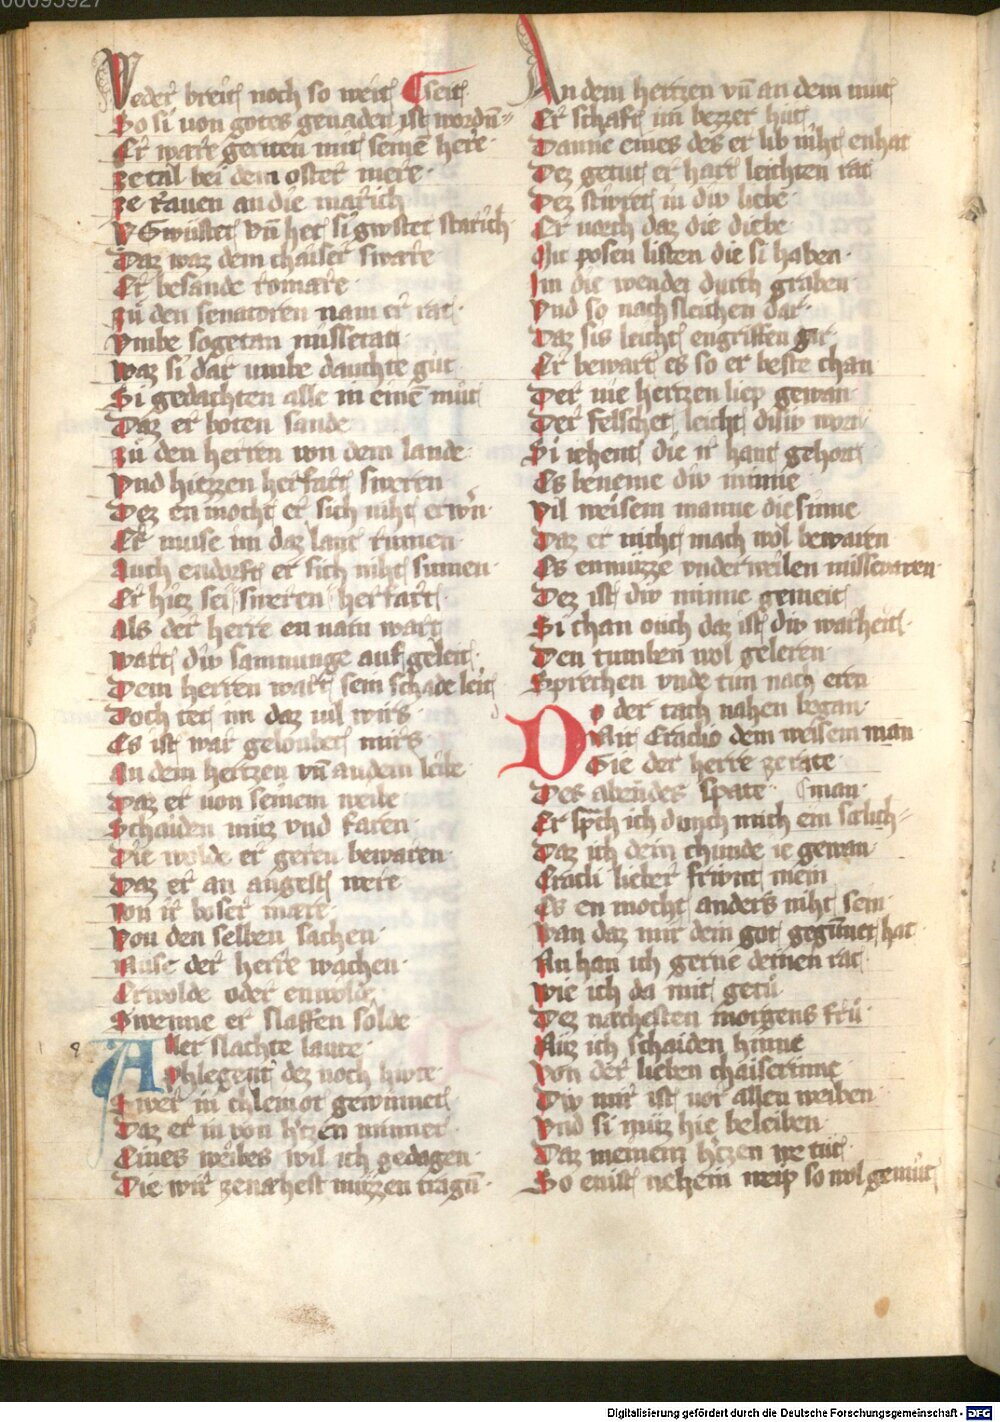 00095927
Weder breit noch so weit
seit
So si von gotes genaden ist wordn
Er ware geriten mit seinē here
ze tal bei dem oster mere
ze rauen an die march
Gwistet vn̄ her si gwster starich
Daz waz dem chaiser sware
Er besande romare
zu den senatoren nam er rat
vmbe sogetan missetat
waz si dar umbe dauchte gut
Si gedachten alle in einē mut
Daz er boten sande
zu den herren von dem lande
vnd hiezzen herfart sweren
Dez en mocht er sich niht erwn
Er muse im daz lant rumen
Auch endorft er sich niht sumen
Er hiez sei sweren herfart
Als der herre en nain wart
wart diw samnunge auf geleit
Dem herren wart sein schade leit
Doch tet im daz vil wirs
Es ist war geloubet mirs
An dem hertzen vn̄ an dem leibe
Daz er von seinem weibe
Schaiden muz vnd faren
Die wolde er geren bewaren
Daz er an angest were
von ir boser mare
Von den selben sachen
Muse der herre wachen
Er wolde oder enwolde
Swenne er slaffen solde
Aller slachte laute
Phlegent dez noch hiwte
Swer in chlemot gewinnet
Daz er in von htzen minnet
Eines weibes wil ich gedagen
Die wir zenæhest muzzen tragn̄
An dem hertzen vn̄ an dem mut
Er schaft im bezzer hut
Danne eines des er lib niht enhat
Dez getut er hart leichten rat
Dez stiwret in diw liebe
Er vorch daz die diebe
Mit posen listen die si haben
In die wende durch graben
Vnd so nach sleichen dar
Daz sis leicht engriffen gar
Er bewart es so er beste chan
Der nie hertzen liep gewan
Der felschet leicht disiv wort
Si iehent die ir hant gehort
Es beneme div minne
Vil weisem manne die sinne
Daz er nicht mach wol bewaren
Es enmuzze vnderweilen missevaren
Dez ist div minne gemeit
Si chan ouch daz ist div warheit
Den tumben wol geleren
Sprechen vnde tun nach eren
Do der tach nahen began
Mit Eraclio dem weisem man
Gie der herre ze rate
Des abendes spate
man
Er sp̄ch ich durch mich ein sælich
Daz ich dein chunde ie gewan
Eracli lieber friwnt mein
Es en mocht anders niht sein
Wan daz mir dem got gegunnet hat
Nu han ich gerne deinen rat
Wie ich da mit getu
Dez nachesten morgens fru
Muz ich schaiden hinne
Von der lieben chaiserinne
Diw mir ist vor allen weiben
Vnd si muz hie beleiben
Daz meinem htzen we tut
So enist nehein weip so wol gemut
Digitalisierung gefördert durch die Deutsche Forschungsgemeinschaft - DFG